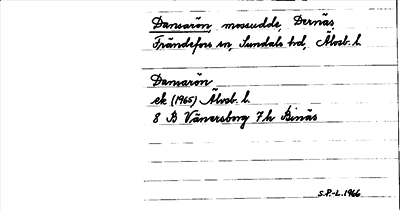 Dansarön, mossudde, Dernäs
Frändefors sn, Sundals hd, Älvsb. l.
Dansarön
ek (1965) Älvsb. l.
8 B Vänersborg 7 h Binäs
S.P.-L. 1966